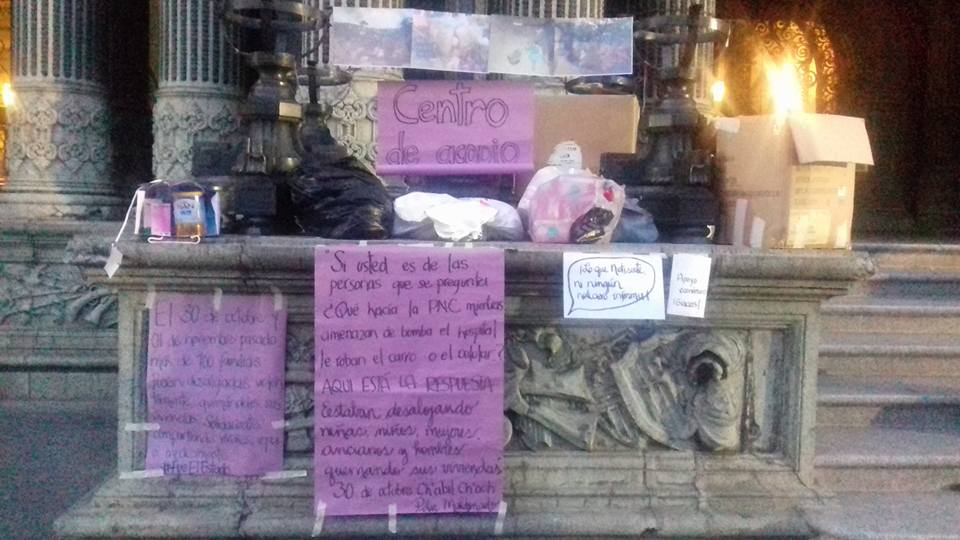 Centro
de acopio
NAN
El 30 de octubre y
01 de noviembre pasado
más de 100 familias
fueron desalojadas
quemándoles sus
viviendas. Solidaricémonos
compartiendo víveres, ropa
o medicinas.
#FueElEstado
"Si usted es de las
personas que se pregunta
¿Qué hacía la PNC mientras
amenazan de bomba el hospital
le roban el carro o el celular?
AQUI ESTÁ LA RESPUESTA
Estaban desalojando
niñas, niños, mujeres,
ancianos y hombres
quemando sus viviendas
30 de octubre Ch'abil Ch'och
¡Lo que Notisiete
ni ningún
noticiero informa!
Apoyo
¡Gracias!